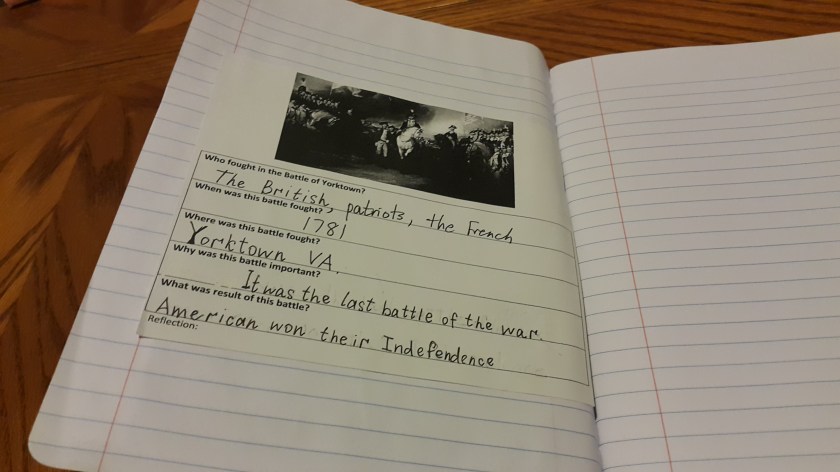 Who fought in the Battle of Yorktown?
The British, patriots, the French
When was this battle fought?
1781
Where was this battle fought?
Yorktown VA.
Why was this battle important?
It was the last battle of the war.
What was result of this battle?
American won their Indefendence
Reflection: